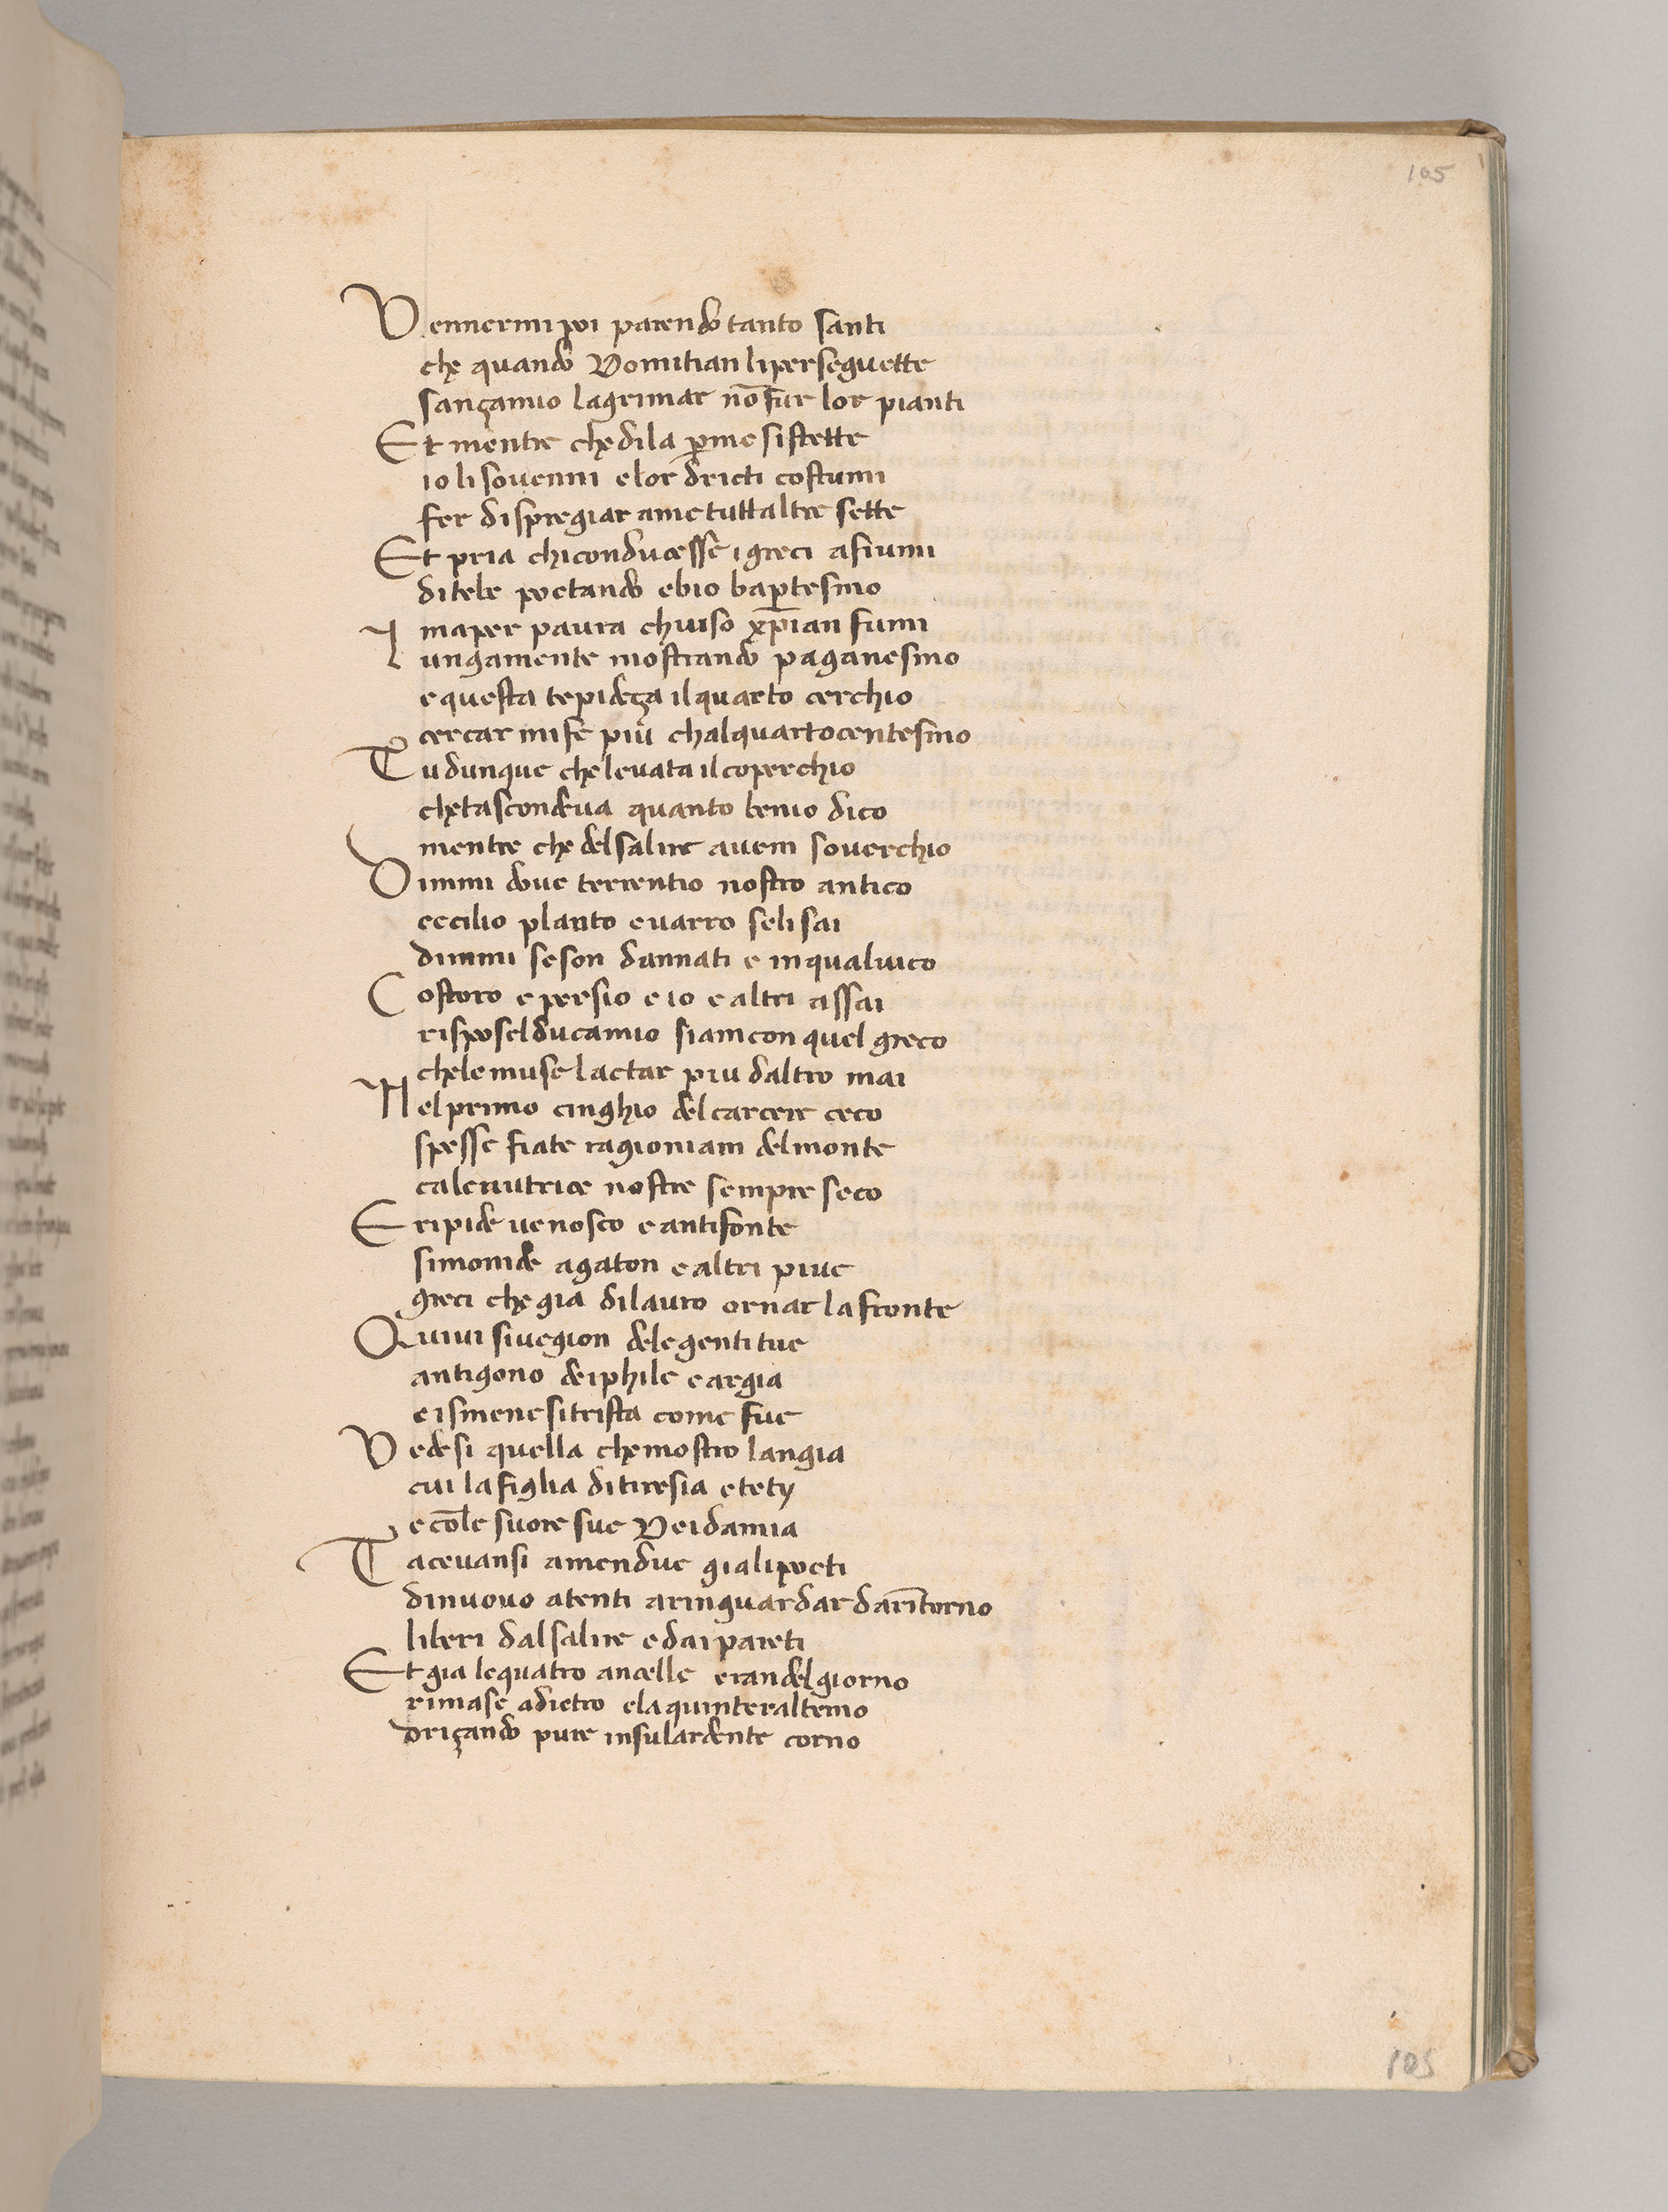 105
Vennermi poi parendo tanto santi
che quando Domitian li perseguette
sança mio lagrimar nō fur lor pianti
Et mentre che di la p me si stette
io li sovenni e lor dricti costumi
fer dispregiar a me tutt altre sette
Et pria ch i conducesse i greci a fiumi
di tebe poetando ebio baptesmo
ma per paura chiuso xp̄ian fumi
Iungamente mostrando paganesmo
e questa tepideça il quarto cerchio
cercar mi fe piu chal quarto centesmo
Tu dunque che levata il coperchio
che tascondeva quanto benio dico
mentre che del salire avem soverchio
Dimmi dove terrentio nostro antico
cecilio planto e varro se li sai
dimmi se son dannati e in qual vico
Costoro e persio e io e altri assai
rispose l duca mio siam con quel greco
che le muse lactar piu daltro mai
Nel primo cinghio del carcere ceco
spesse fiate ragioniam del monte
cale nutrice nostre sempre seco
Eripide ve nosco e antifonte
simonide agaton e altri piue
greci che gia di lauro ornar la fronte
Quivi si vegion de le genti tue
antigono deiphile e argia
e ismene si trista come fue
Vedesi quella che mostro langia
cui la figlia di tiresia e tety
e cōle suore sue Deidamia
Tacevansi amendue gia li poeti
di nuovo atenti a ringuardar darītorno
liberi dal salire e dai pareti
Et gia le quatro ancelle eran del giorno
rimase adietro e la quinter al temo
driçando pure in su lardente corno
105